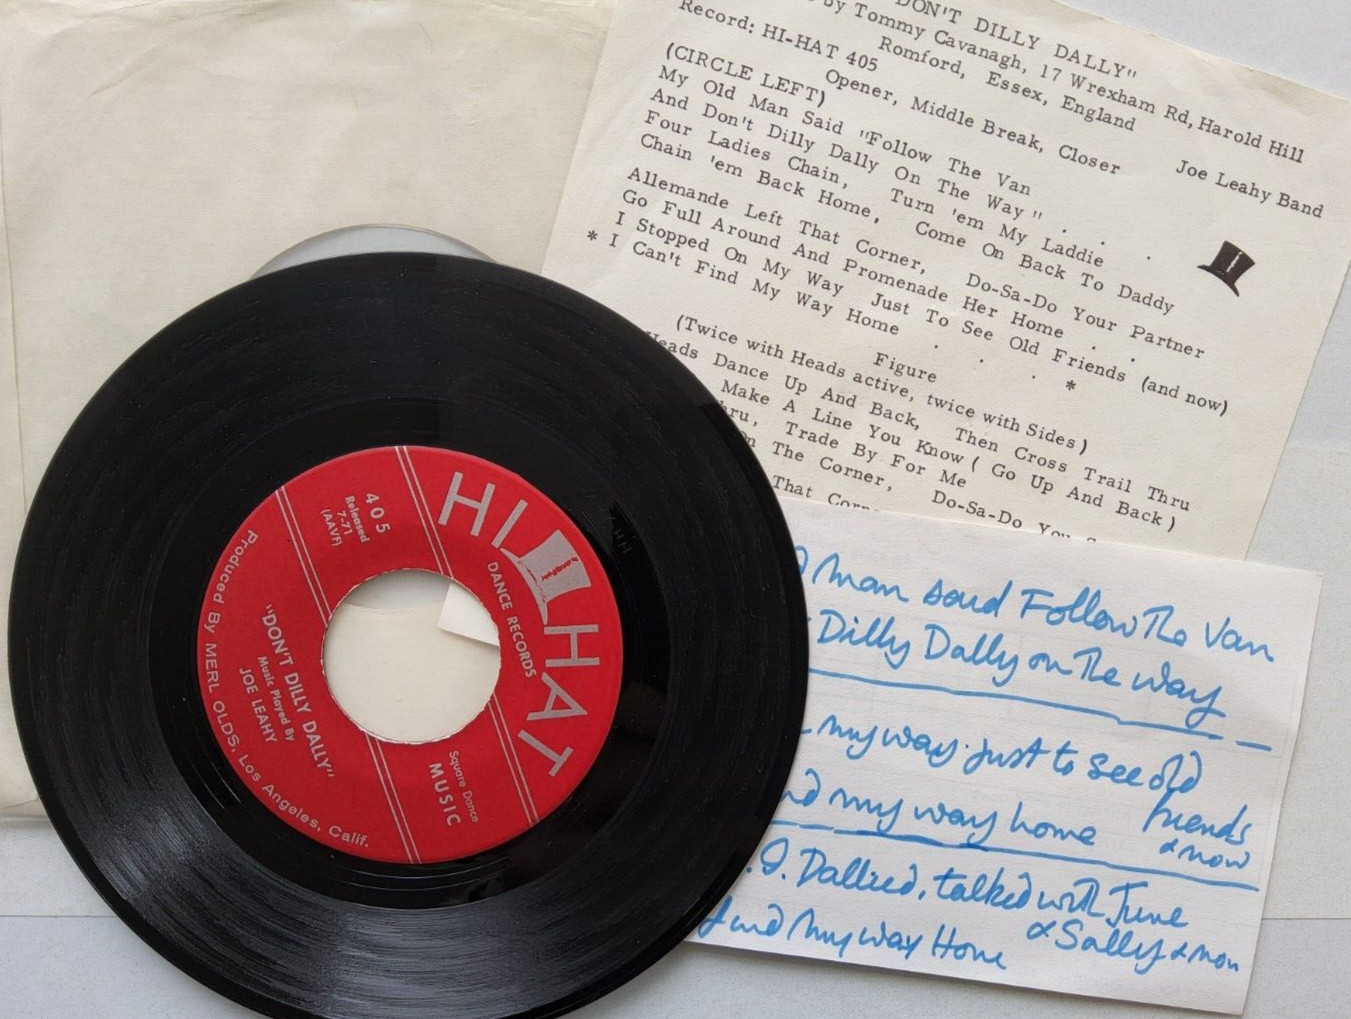 DON'T DILLY DALLY"
by Tommy Cavanagh, 17 Wrexham Rd, Harold Hill
Romford, Essex, England
Record: HI-HAT 405
Joe Leahy Band
Opener, Middle Break, Closer
(CIRCLE LEFT)
My Old Man Said "Follow The Van
And Don't Dilly Dally On The Way" . .
Four Ladies Chain, Turn 'em My Laddie .
Chain 'em Back Home, Come On Back To Daddy
Allemande Left That Corner, Do-Sa-Do Your Partner
Go Full Around And Promenade Her Home . .
I Stopped On My Way Just To See Old Friends (and now)
* I Can't Find My Way Home . . . *
Figure
(Twice with Heads active, twice with Sides)
Heads Dance Up And Back, Then Cross Trail Thru
Make A Line You Know ( Go Up And Back )
Trade By For Me
On The Corner, Do-Sa-Do
That
HI HAT
DANCE RECORDS
405
Released
7-71
(AAVF)
"DON'T DILLY DALLY"
Music Played By
JOE LEAHY
Square Dance
MUSIC
Produced By MERL OLDS, Los Angeles, Calif.
man said Follow The Van
Dilly Dally on The way
my way just to see old
friends
& now
my way home
I. Dallied, talked with June
& Sally & now
find my way Home